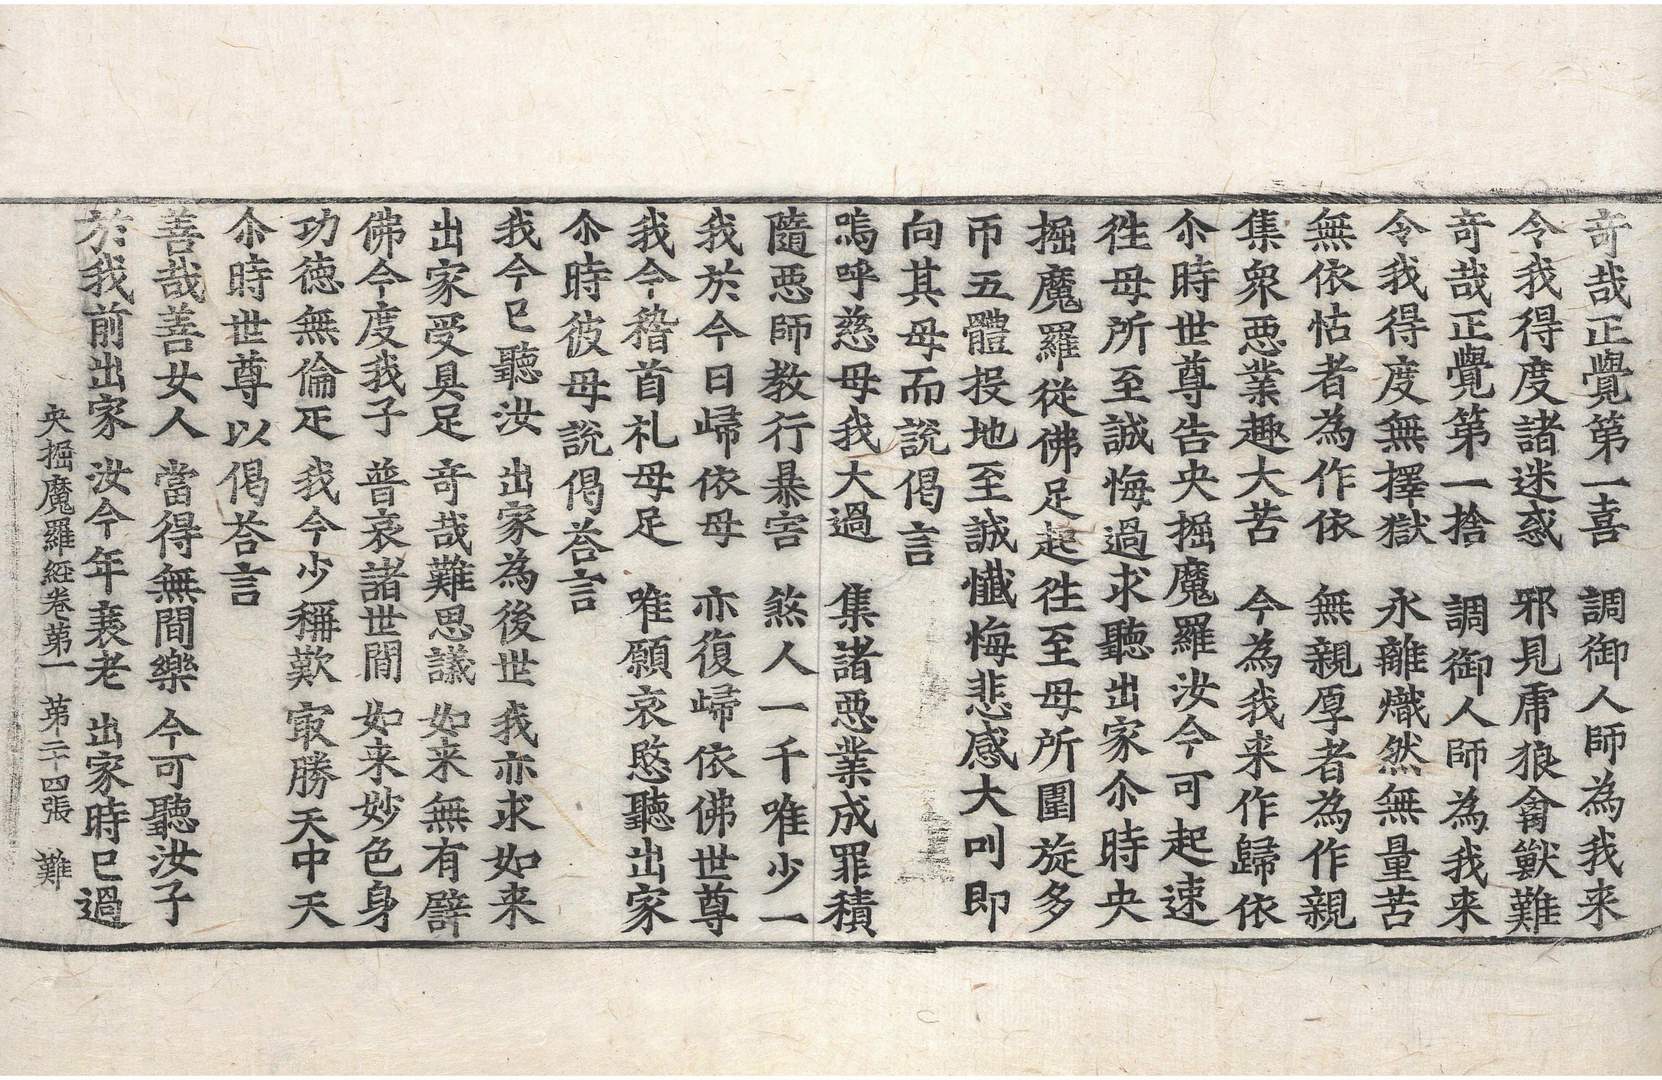 奇哉正覺第一喜　調御人師為我来
令我得度諸迷惑　邪見虎狼禽獸難
奇哉正覺第一捨　調御人師為我来
令我得度無擇獄　永離熾然無量苦
無依怙者為作依　無親厚者為作親
集衆惡業趣大苦　今為我来作歸依
尒時世尊告央掘魔羅汝今可起速
徃母所至誠悔過求聽出家尒時央
掘魔羅從佛足起徃至母所圍旋多
帀五體投地至誠懴悔悲感大叫即
向其母而說偈言
嗚呼慈母我大過　集諸惡業成罪積
隨惡師教行暴害　煞人一千唯少一
我於今日歸依母　亦復歸依佛世尊
我今稽首礼母足　唯願哀愍聽出家
尒時彼母說偈荅言
我今已聽汝　出家為後世　我亦求如来
出家受具足　奇哉難思議　如来無有譬
佛今度我子　普哀諸世間　如来妙色身
功德無倫疋　我今少稱歎　冣勝天中天
尒時世尊以偈荅言
善哉善女人　當得無間樂　今可聽汝子
於我前出家　汝今年衰老　出家時已過
央掘魔羅經卷第一　第二十四張　難